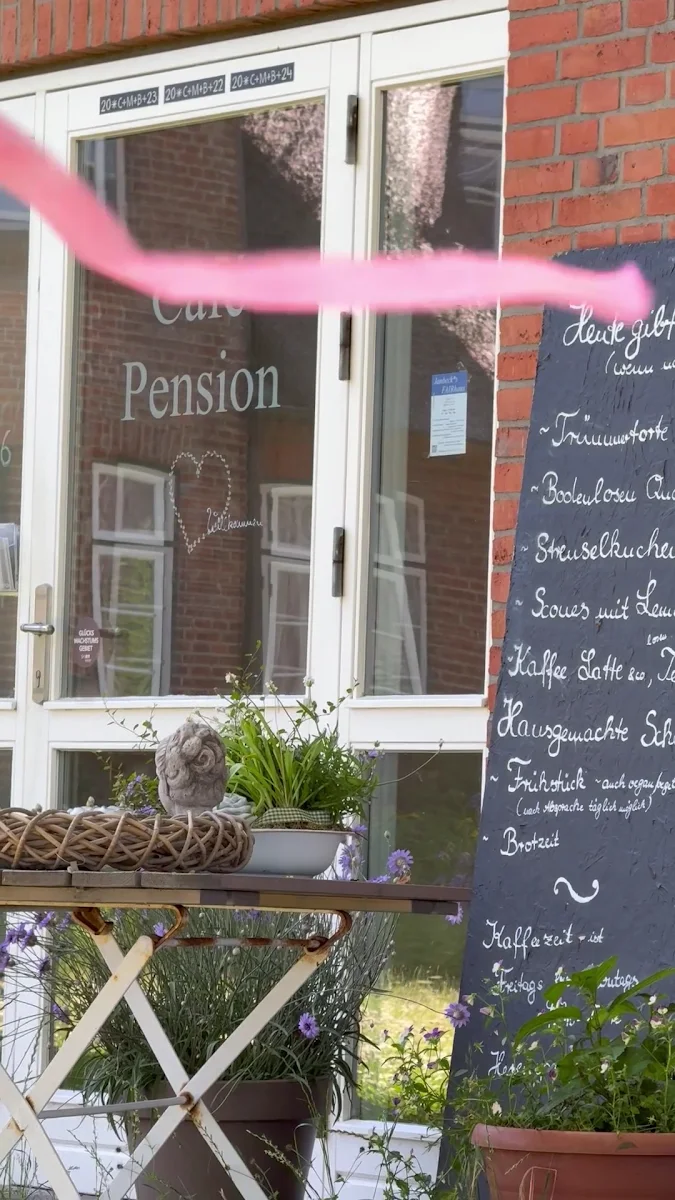 20*C+M+B+23 20*C+M+B+22 20*C+M+B+24
Café
Pension
Willkommen
GLÜCKS
WACHSTUMS
GEBIET
6
Heute gibt
(wenn
~ Trümmertorte
~ Bodenlosen Qua
~ Streuselkuchen
~ Scones mit Lem
Kaffee Latte &co,
Hausgemachte Sch
~ Frühstück ~ auch vegan
(nach Absprache täglich möglich)
~ Brotzeit
~
Kaffeezeit - ist
Freitags